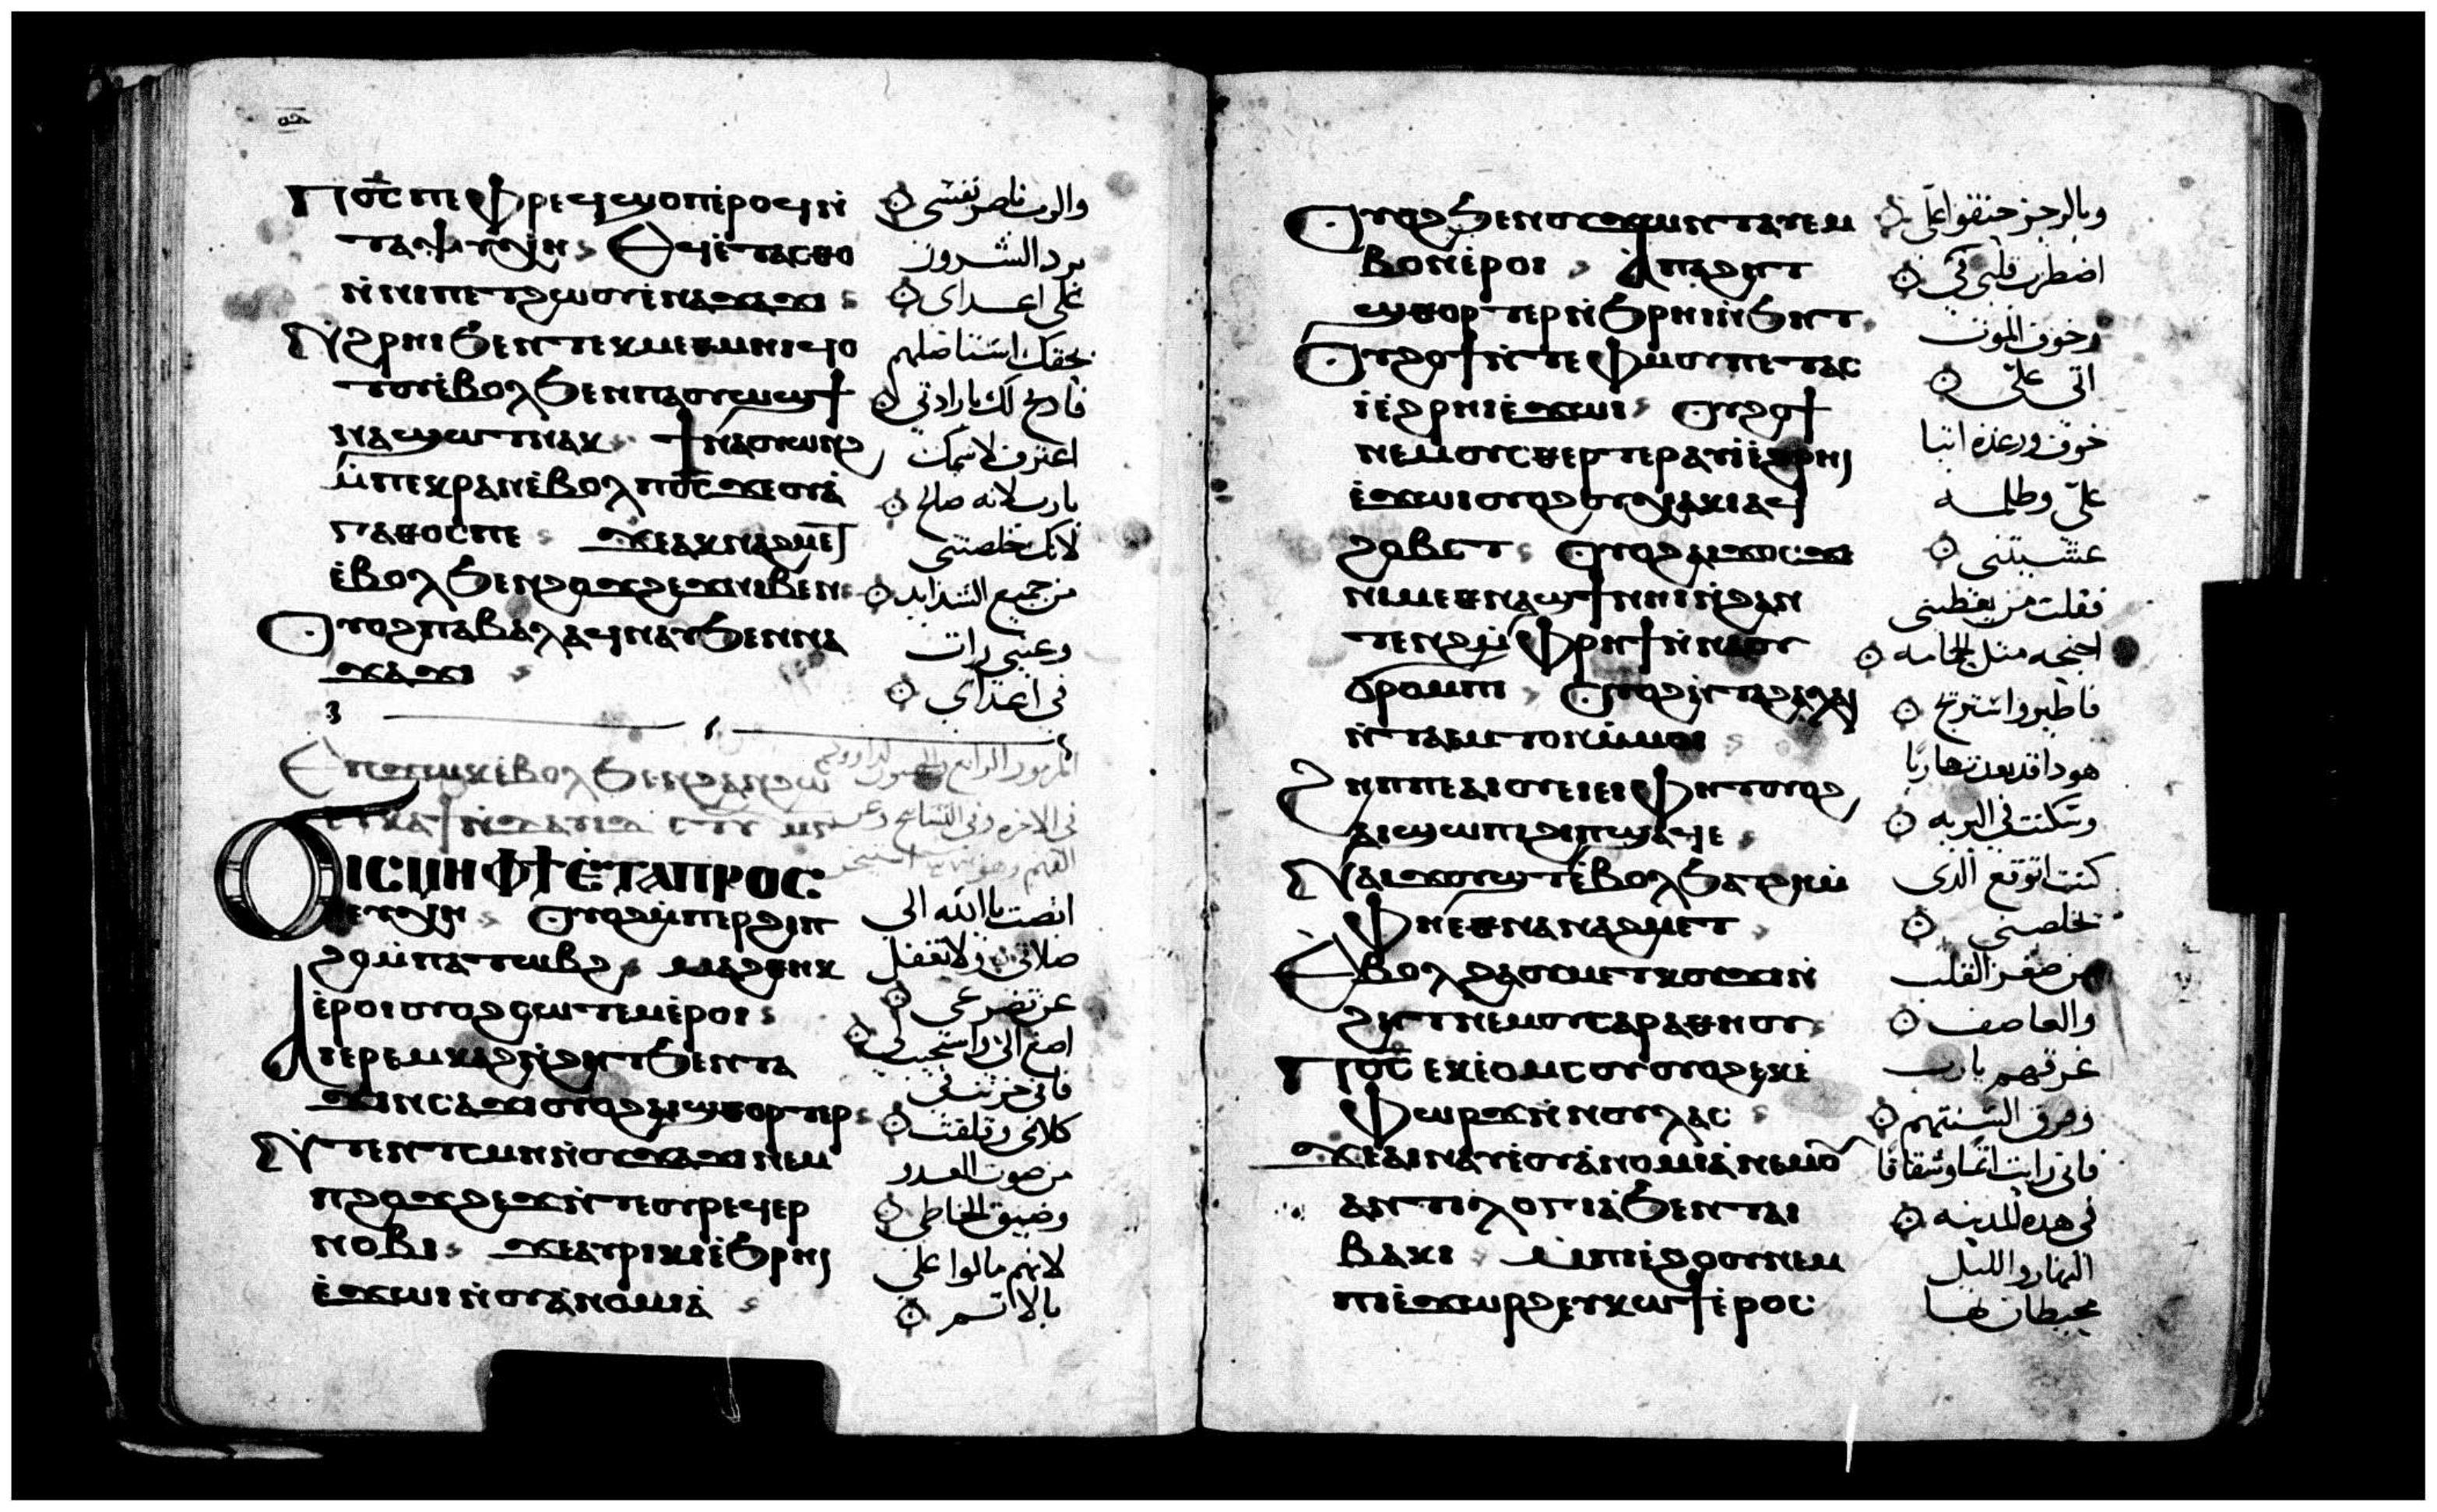 Ⲡⲟ̅ⲥ̅ ⲡⲉ ⲫⲣⲉϥϣⲟⲡⲧ ⲉⲣⲟϥ ⲛ̀
ⲧⲁⲯⲩⲭⲏ Ⲉϥⲉ̀ⲧⲁⲥⲑⲟ
ⲛ̀ⲛⲓⲡⲉⲧϩⲱⲟⲩ ⲉ̀ⲛⲁϫⲁϫⲓ
Ⲛ̀ϩⲣⲏⲓ ϧⲉⲛ ⲧⲉⲕⲙⲉⲑⲙⲏⲓ ϥⲟ
ⲧⲟⲩ ⲉ̀ⲃⲟⲗ ϧⲉⲛ ⲡⲁⲟⲩⲱϣ ϯ
ⲛⲁϣⲱⲧ ⲛⲁⲕ ϯⲛⲁⲟⲩⲱⲛϩ
ⲙ̀ⲡⲉⲕⲣⲁⲛ ⲉ̀ⲃⲟⲗ ⲡⲟ̅ⲥ̅ ϫⲉ ⲟⲩⲁ̀
ⲅⲁⲑⲟⲥ ⲡⲉ ϫⲉ ⲁⲕⲛⲁϩⲙⲉⲧ
ⲉ̀ⲃⲟⲗ ϧⲉⲛ ϩⲟϫϩⲉϫ ⲛⲓⲃⲉⲛ
Ⲟⲩⲟϩ ⲡⲁⲃⲁⲗ ⲁϥⲛⲁⲩ ϧⲉⲛ ⲛⲁ
ϫⲁϫⲓ
والرب ناصر نفسي
يرد الشرور
على اعداي
بحقك استاصلهم
فادبح لك بارادتي
اعترف لاسمك
يارب لانه صالح
لانك خلصتني
من جميع الشدايد
وعيني رات
في اعداي
Ⲉⲡϫⲱⲕ ⲉ̀ⲃⲟⲗ ϧⲉⲛ ϩⲁⲛϩⲱ
Ϭⲓⲥⲙⲏ ⲫϯ ⲉ̀ⲧⲁⲡⲣⲟⲥ
ⲉⲩⲭⲏ Ⲟⲩⲟϩ ⲙ̀ⲡⲉⲣϩⲓⲡ
ϩⲟ ⲙ̀ⲡⲁⲧⲱⲃϩ ⲙⲁϩⲑⲏⲕ
ⲉ̀ⲣⲟⲓ ⲟⲩⲟϩ ⲥⲱⲧⲉⲙ ⲉ̀ⲣⲟⲓ
Ⲁⲓⲉⲣⲉⲙⲕⲁϩ ⲛ̀ϩⲏⲧ ϧⲉⲛ ⲡⲁ
ϫⲓⲛⲥⲁϫⲓ ⲟⲩⲟϩ ⲁⲓϣⲑⲟⲣⲧⲉⲣ
Ⲛ̀ⲧⲉⲛ ⲧ̀ⲥⲙⲏ ⲛ̀ⲟⲩϫⲁϫⲓ ⲛⲉⲙ
ⲡϩⲟϫϩⲉϫ ⲛ̀ⲧⲉ ⲟⲩⲣⲉϥⲉⲣ
ⲛⲟⲃⲓ ϫⲉ ⲁⲩⲣⲓⲕⲓ ⲉ̀ϧⲣⲏⲓ
ⲉ̀ϫⲱⲓ ⲛ̀ⲟⲩⲁ̀ⲛⲟⲙⲓⲁ̀
انصت يا الله الى
صلاتي ولا تغفل
عن تضرعي
اصغ الي واستجيب لي
فاني حزنت في
كلامي وقلقت
من صوت العدو
وضيق الخاطي
لانهم مالوا على
بالاثم
Ⲟⲩⲟϩ ϧⲉⲛ ⲟⲩϫⲱⲛⲧ ⲁⲩⲉⲙ
ⲃⲟⲛ ⲉ̀ⲣⲟⲓ Ⲁ̀ⲡⲁϩⲏⲧ
ϣⲑⲟⲣⲧⲉⲣ ⲛ̀ϧⲣⲏⲓ ⲛ̀ϧⲏⲧ
Ⲟⲩϩⲟϯ ⲛ̀ⲧⲉ ⲫⲙⲟⲩ ⲡⲉⲧⲁⲥ
ⲓ̀ ⲉ̀ϩⲣⲏⲓ ⲉ̀ϫⲱⲓ Ⲟⲩϩⲟϯ
ⲛⲉⲙ ⲟⲩⲥⲑⲉⲣⲧⲉⲣ ⲁⲩⲓ̀ ⲉ̀ϩⲣⲏⲓ
ⲉ̀ϫⲱⲓ ⲟⲩⲟϩ ⲟⲩⲭⲁⲕⲓ ⲁϥ
ϩⲟⲃⲥⲧ Ⲟⲩⲟϩ ⲁⲓϫⲟⲥ ϫⲉ
ⲛⲓⲙ ⲉⲑⲛⲁϯ ⲛⲏⲓ ⲛ̀ϩⲁⲛ
ⲧⲉⲛϩ ⲙ̀ⲫⲣⲏϯ ⲛ̀ⲛⲓⲟⲩ
ϭⲣⲟⲙⲡⲓ Ⲟⲩⲟϩ ⲛ̀ⲧⲁϩⲁⲗⲁⲓ
ⲛ̀ⲧⲁⲙⲧⲟⲛ ⲙ̀ⲙⲟⲓ
Ϩⲏⲡⲡⲉ ⲁⲓⲟⲩⲉⲓ ⲉⲓⲫⲏⲧ ⲟⲩⲟϩ
ⲁⲓϣⲱⲡⲓ ϩⲓ ⲡϣⲁϥⲉ
Ⲛⲁⲓϫⲟⲩϣⲧ ⲉ̀ⲃⲟⲗ ϧⲁⲧϩⲏ ⲙ̀
ⲫⲏ ⲉⲑⲛⲁⲛⲁϩⲙⲉⲧ
Ⲉ̀ⲃⲟⲗ ϩⲁ ⲟⲩⲙⲉⲧⲕⲟⲩϫⲓ ⲛ̀
ϩⲏⲧ ⲛⲉⲙ ⲟⲩⲥⲁⲣⲁⲑⲏⲟⲩ
Ⲡⲟ̅ⲥ̅ ⲉⲕⲉ̀ⲟⲙⲥⲟⲩ ⲟⲩⲟϩ ⲉⲕⲉ̀
ⲫⲱⲣϫ ⲛ̀ⲛⲟⲩⲗⲁⲥ
ϫⲉ ⲁⲓⲛⲁⲩ ⲉ̀ⲟⲩⲁ̀ⲛⲟⲙⲓⲁ̀ ⲛⲉⲙ ⲟⲩ
ⲁⲛⲧⲓⲗⲟⲅⲓⲁ̀ ϧⲉⲛ ⲧⲁⲓ
ⲃⲁⲕⲓ Ⲙ̀ⲡⲓⲉ̀ϩⲟⲟⲩ ⲛⲉⲙ
ⲡⲓⲉ̀ϫⲱⲣϩ ⲉⲩⲕⲱϯ ⲉ̀ⲣⲟⲥ
وبالرجز حنقوا علي
اضطرب قلبي في
وخوف الموت
اتى علي
خوف ورعدة اتيا
علي وظلمه
غشيتني
فقلت من يعطيني
اجنحه مثل الحمامه
فاطير واستريح
هودا قد بعدت هاربا
وسكنت في البريه
كنت اتوقع الدى
يخلصني
من صغر القلب
والعاصف
غرقهم يارب
وفرق السنتهم
فاني رايت اثما وشقاقا
في هده المدينه
النهار والليل
محيطان بها